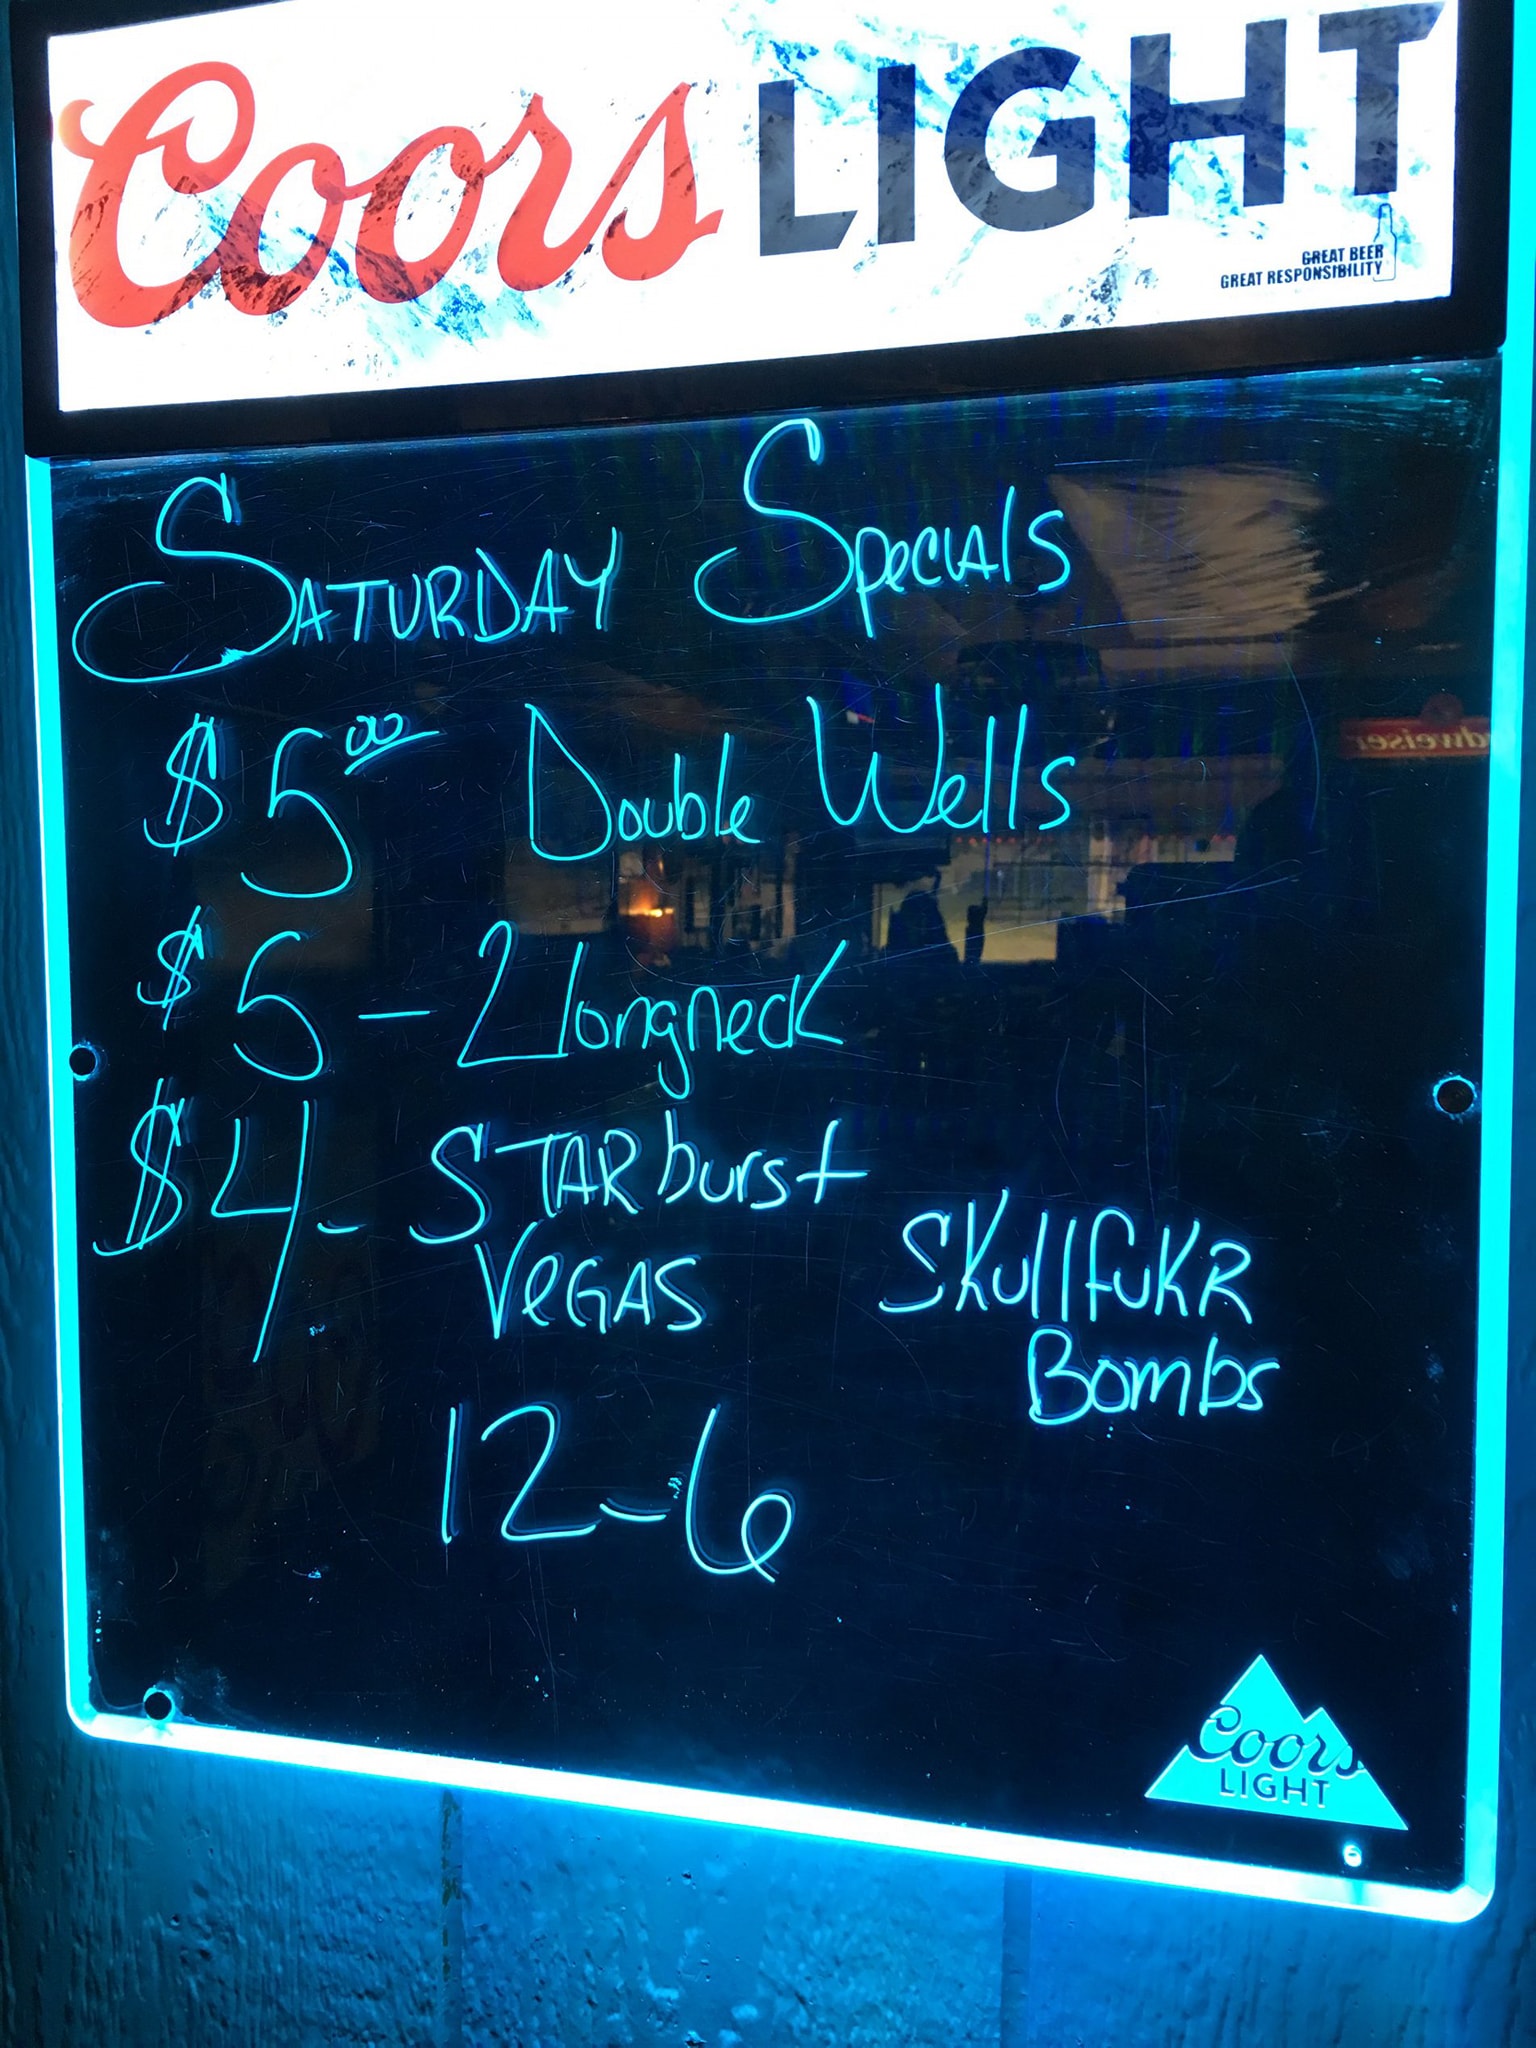 Coors LIGHT
GREAT BEER
GREAT RESPONSIBILITY
SATURDAY Specials
$5.00 Double Wells
$5 - 2 longneck
$4 - STARburst
VEGAS
SKullfuKR
Bombs
12-6
Coors
LIGHT